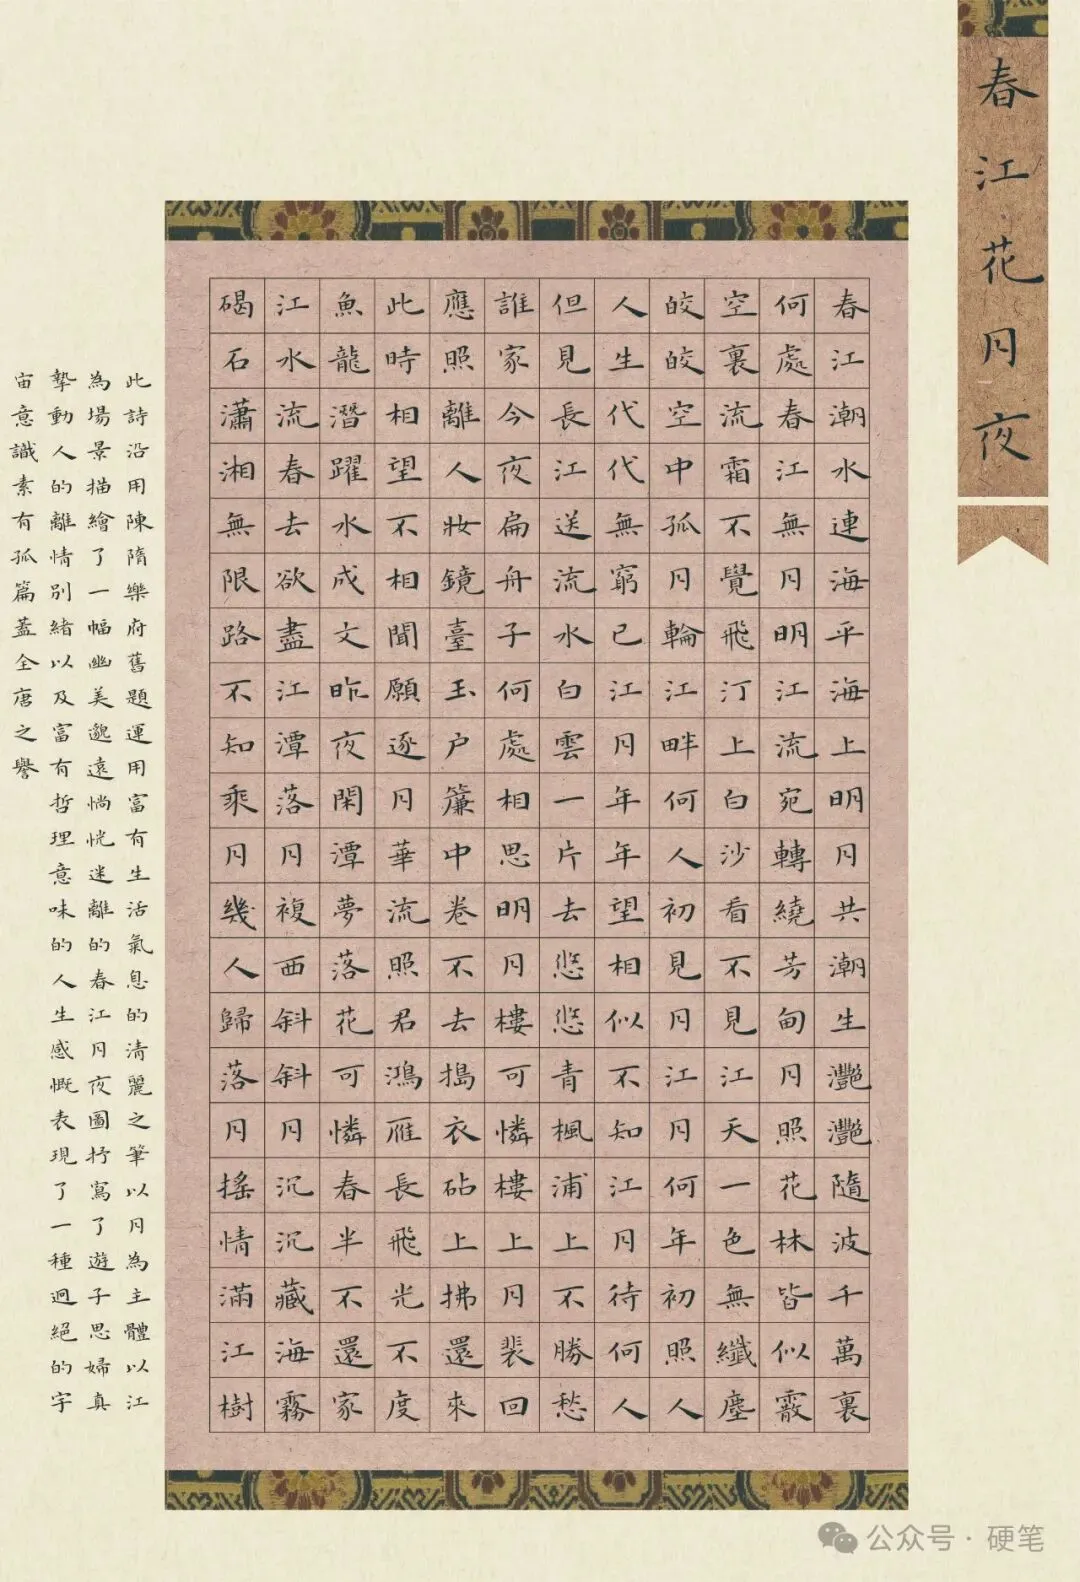 春江花月夜
春江潮水連海平海上明月共潮生灔灔隨波千萬裏
何處春江無月明江流宛轉繞芳甸月照花林皆似霰
空裏流霜不覺飛汀上白沙看不見江天一色無纖塵
皎皎空中孤月輪江畔何人初見月江月何年初照人
人生代代無窮已江月年年望相似不知江月待何人
但見長江送流水白雲一片去悠悠青楓浦上不勝愁
誰家今夜扁舟子何處相思明月樓可憐樓上月裴回
應照離人妝鏡臺玉户簾中卷不去搗衣砧上拂還來
此時相望不相聞願逐月華流照君鴻雁長飛光不度
魚龍潛躍水成文昨夜閑潭夢落花可憐春半不還家
江水流春去欲盡江潭落月複西斜斜月沉沉藏海霧
碣石瀟湘無限路不知乘月幾人歸落月搖情滿江樹
此詩沿用陳隋樂府舊題運用富有生活氣息的清麗之筆以月為主體以江
為場景描繪了一幅幽美邈遠惝恍迷離的春江月夜圖抒寫了遊子思婦真
摯動人的離情別緒以及富有哲理意味的人生感慨表現了一種迥絕的宇
宙意識素有孤篇蓋全唐之譽
公众号·硬笔